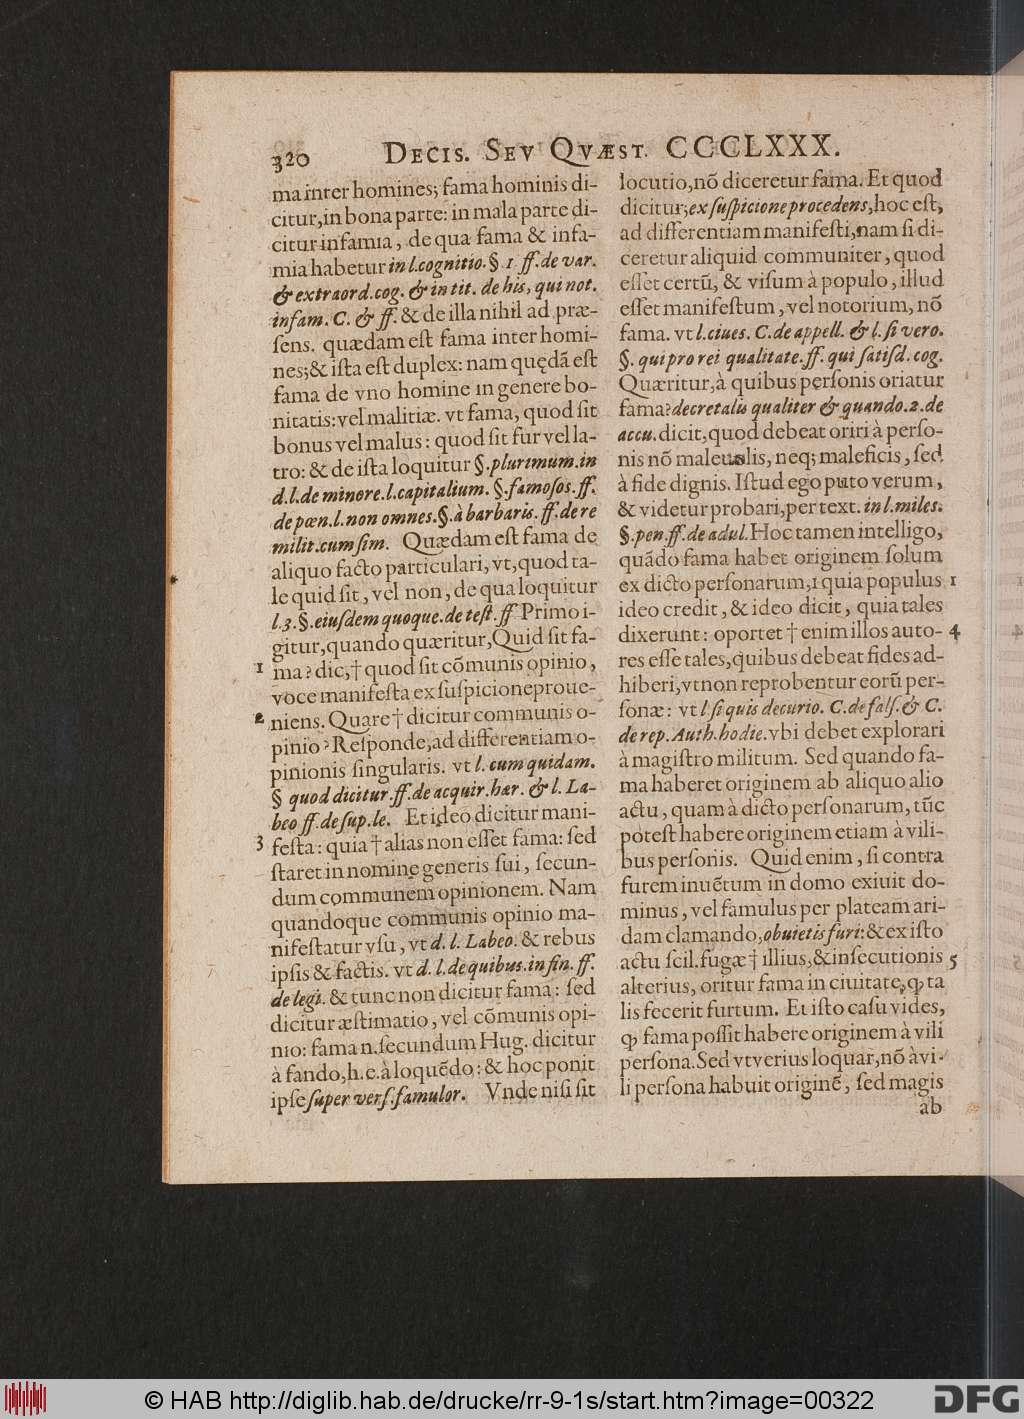 320 DECIS. SEV QVÆST. CCCCLXXX.
ma inter homines; fama hominis di-
citur, in bona parte: in mala parte di-
citur infamia, de qua fama & infa-
mia habetur in l. cognitio. § 1 ff. de var.
& extraord. cog. & in tit. de his, qui not.
infam. C. & ff. & de illa nihil ad præ-
ſens. quædam eſt fama inter homi-
nes; & iſta eſt duplex: nam quędā eſt
fama de vno homine in genere bo-
nitatis: vel malitiæ. vt fama, quod ſit
bonus vel malus: quod ſit fur vel la-
tro: & de iſta loquitur §. plurimum. in
d. l. de minore. l. capitalium. §. famoſos. ff.
de pœn. l. non omnes. §. à barbaris. ff. de re
milit. cum ſim. Quædam eſt fama de
aliquo facto particulari, vt, quod ta-
le quid ſit, vel non, de qua loquitur
l. 3. §. eiuſdem quoque. de teſt. ff Primo i-
gitur, quando quæritur, Quid ſit fa-
1 ma? dic, † quod ſit cōmunis opinio,
voce manifeſta ex ſuſpicione proue-
2 niens. Quare † dicitur communis o-
pinio? Reſponde, ad differentiam o-
pinionis ſingularis. vt l. cum quidam.
§ quod dicitur. ff. de acquir. hær. & l. La-
beo ff. de ſup. le. Et ideo dicitur mani-
3 feſta: quia † alias non eſſet fama: ſed
ſtaret in nomine generis ſui, ſecun-
dum communem opinionem. Nam
quandoque communis opinio ma-
nifeſtatur vſu, vt d. l. Labeo. & rebus
ipſis & factis. vt d. l. de quibus. in fin. ff.
de legi. & tunc non dicitur fama: ſed
dicitur æſtimatio, vel cōmunis opi-
nio: fama n. ſecundum Hug. dicitur
à fando, h. e. à loquēdo: & hoc ponit
ipſe ſuper verſ. famulor. Vnde niſi ſit
locutio, nō diceretur fama. Et quod
dicitur; ex ſuſpicione procedens, hoc eſt,
ad differentiam manifeſti, nam ſi di-
ceretur aliquid communiter, quod
eſſet certū, & viſum à populo, illud
eſſet manifeſtum, vel notorium, nō
fama. vt l. ciues. C. de appell. & l. ſi vero.
§. qui pro rei qualitate. ff. qui ſatiſd. cog.
Quæritur, à quibus perſonis oriatur
fama? decretalis qualiter & quando. 2. de
accu. dicit, quod debeat oriri à perſo-
nis nō maleuolis, neq; maleficis, ſed
à fide dignis. Iſtud ego puto verum,
& videtur probari, per text. in l. miles.
§. pen. ff. de adul. Hoc tamen intelligo,
quādo fama habet originem ſolum
ex dicto perſonarum, 1 quia populus 1
ideo credit, & ideo dicit, quia tales
dixerunt: oportet † enim illos auto- 4
res eſſe tales, quibus debeat fides ad-
hiberi, vt non reprobentur eorū per-
ſonæ: vt l ſi quis decurio. C. de falſ. & C.
de rep. Auth. hodie. vbi debet explorari
à magiſtro militum. Sed quando fa-
ma haberet originem ab aliquo alio
actu, quam à dicto perſonarum, tūc
poteſt habere originem etiam à vili-
bus perſonis. Quid enim, ſi contra
furem inuētum in domo exiuit do-
minus, vel famulus per plateam ari-
dam clamando, obuietis furi: & ex iſto
actu ſcil. fugæ † illius, & inſecutionis 5
alterius, oritur fama in ciuitate, ꝙ ta
lis fecerit furtum. Et iſto caſu vides,
ꝙ fama poſſit habere originem à vili
perſona. Sed vt verius loquar, nō à vi-
li perſona habuit originē, ſed magis
ab
© HAB http://diglib.hab.de/drucke/rr-9-1s/start.htm?image=00322
DFG